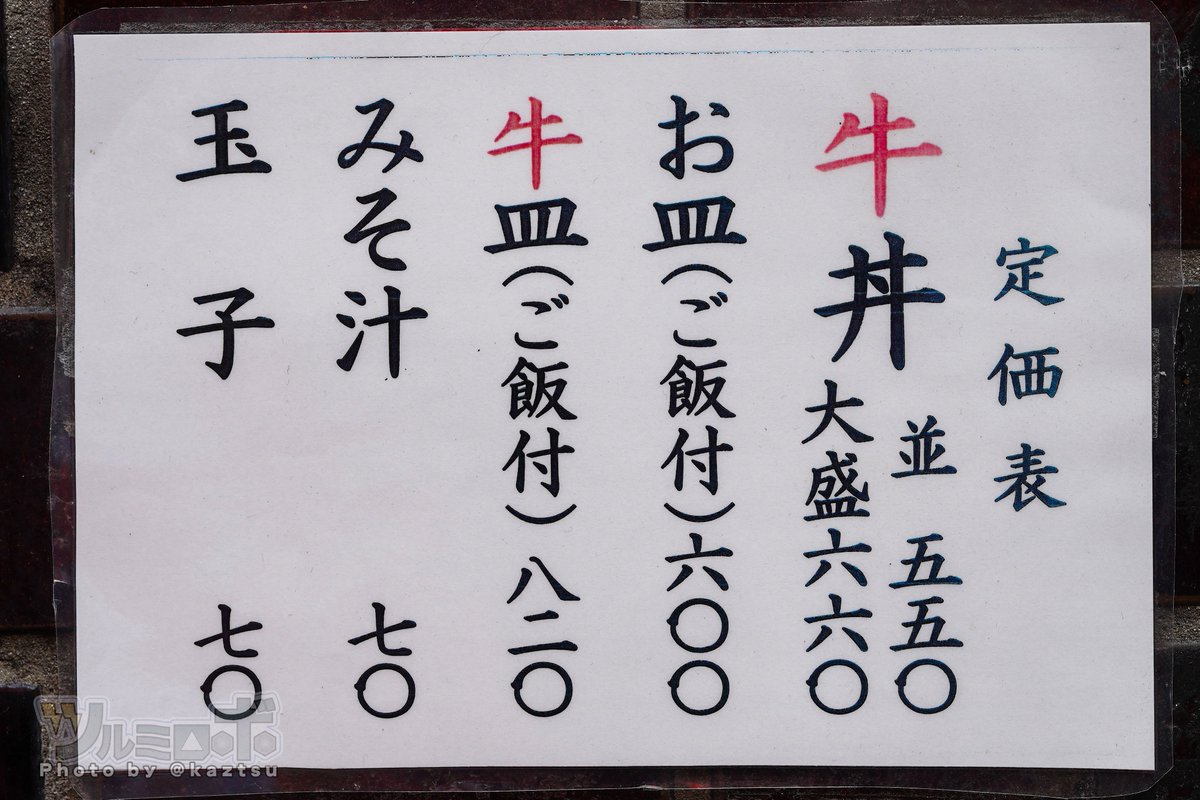 定価表
牛丼 並 五五〇
大盛 六六〇
お皿(ご飯付)六〇〇
牛皿(ご飯付)八二〇
みそ汁 七〇
玉子 七〇
ツルミロボ
Photo by @kaztsu